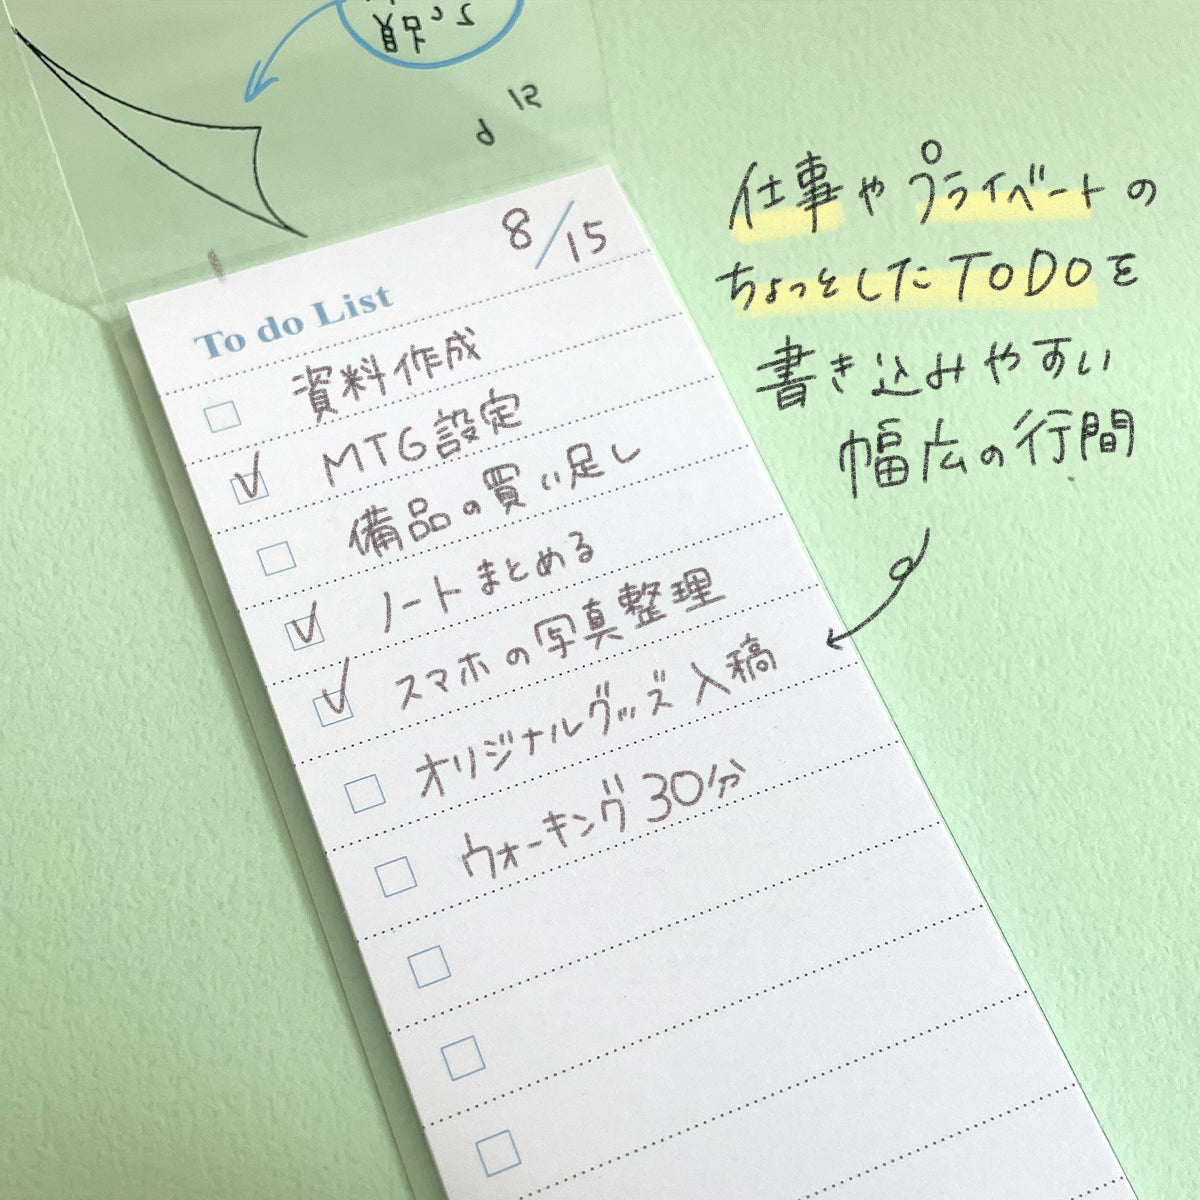 8/15
To do List
資料作成
MTG設定
備品の買い足し
ノートまとめる
スマホの写真整理
オリジナルグッズ入稿
ウォーキング30分
仕事やプライベートの
ちょっとしたTODOを
書き込みやすい
幅広の行間